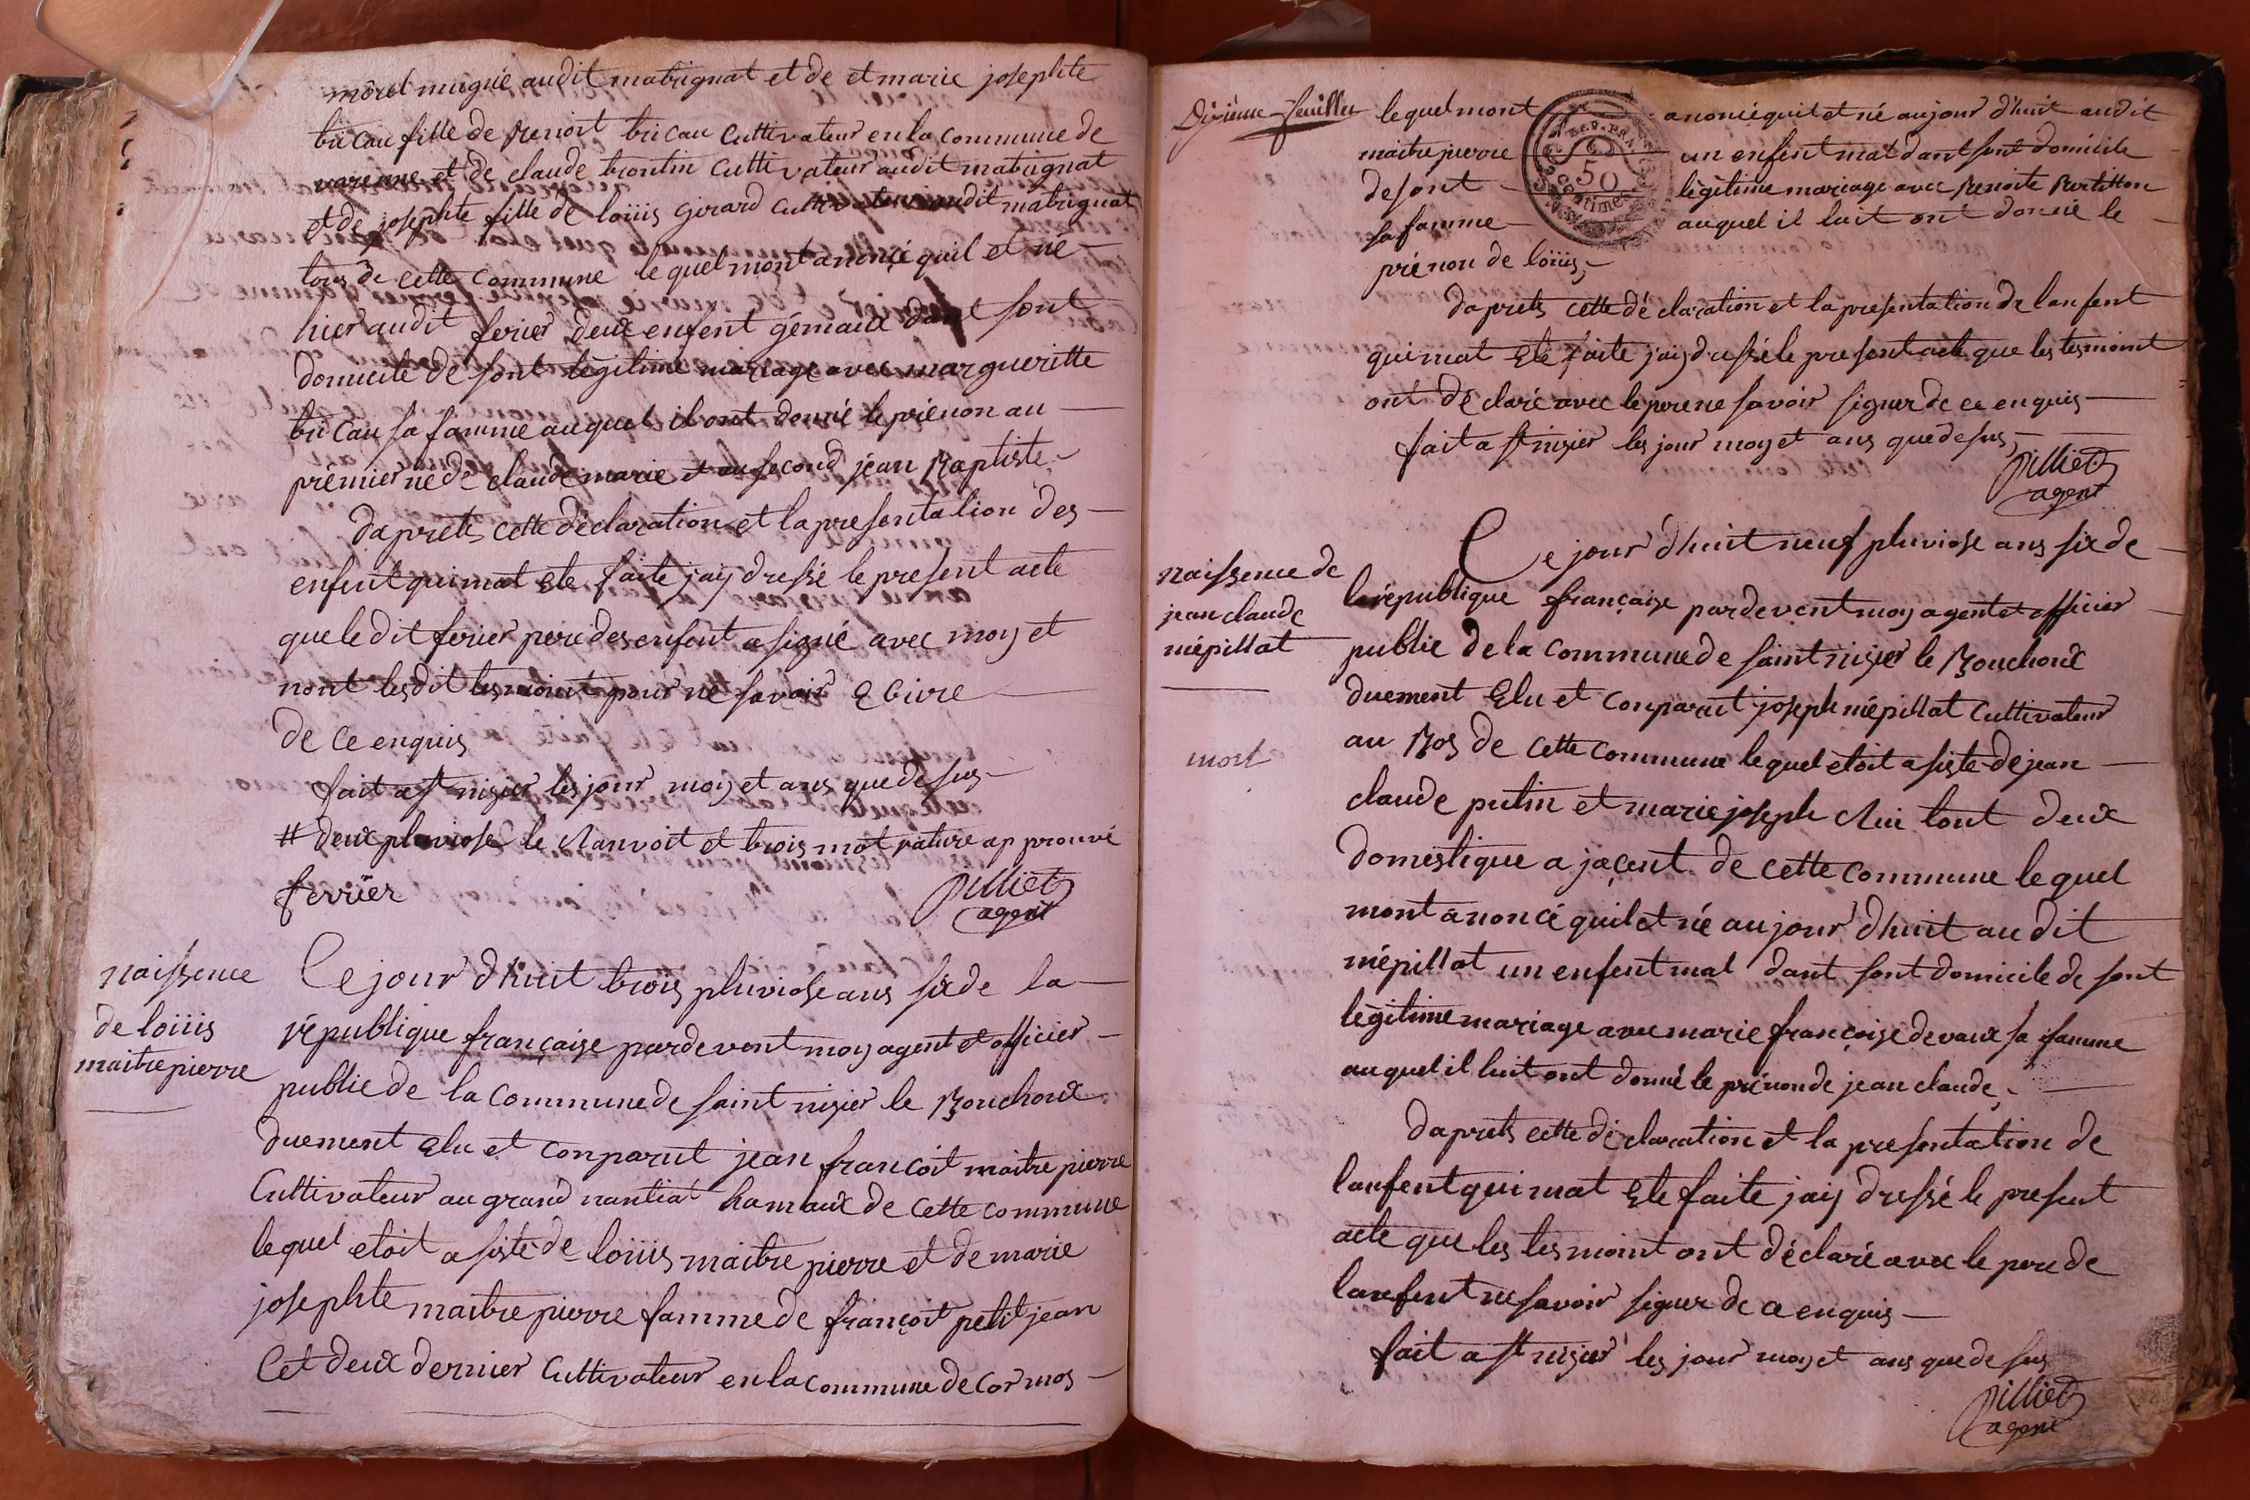 morel mugnié audit matrignat et de et marie josephte
bricau fille de Benoit bricau cultivateur en la commune de
varenne et de claude brontin cultivateur audit matrignat
et de josephte fille de loüis girard cultivateur audit matrignat
tous de cette commune le quel mont anoncé quil et né
hier audit ferier deux enfent gémaux dont font
domicile de sont légitime mariage avec margueritte
bricau sa famme auquel il ont donné le prénon au
prémier né de claude marie et au second jean Baptiste
daprets cette déclaration et la presentation des
enfent qui mat ete faite jaij dressé le present acte
que le dit ferier pere des enfent a signé avec moij et
nont lesdit tesmoint pour ne savoir Ecire
de ce enquis
fait a st nisier les jour moij et ans que desus
# deux pluviose le Manvoit et trois mot rature ap prouvé
ferrier
pilliet
agent
naissence
de loüis
maitrepierre
Ce jour dhuit trois pluviose ans six de la
république françaize pardevent moij agent et officier
public de la commune de saint nisier le Bouchoux
duement Elu et conparut jean francoit maitre pierre
Cultivateur au grand nantiat hamaux de cette commune
lequel etoit asisté de loüis maitre pierre et de marie
josephte maitre pierre famme de françoit petit jean
Cet deux dernier Cultivateur en la commune de cormos
Dixième feuillet
lequel mont anoncé quil et né aujour dhuit audit
maitre pierre un enfent mal dant font domicile
de sont légitime mariage avec Benoite Burtillon
sa famme auquel il luit ont donné le
prénon de loüis
50
centimes
daprets cette déclaration et la presentation de lanfent
qui mat ete faite jaij dressé le present acte que les tesmoint
ont déclaré avec le pere ne savoir signer de ce enquis
fait a st nisier les jour moij et ans que desus
pilliet
agent
naissence de
jean claude
népillat
mort
Ce jour dhuit neuf pluviose ans six de
la république françaize pardevent moij agent et officier
public de la commune de saint nisier le Bouchoux
duement Elu et conparut joseph népillat cultivateur
au Bos de cette commune lequel etoit asisté de jean
claude putin et marie joseph clui tout deux
domestique a jacent de cette commune lequel
mont anoncé quil et né aujour dhuit audit
népillat un enfent mal dant sont domicile de sont
légitime mariage avec marie françoise devaux sa famme
auquel il luit ont donné le prénon de jean claude
daprets cette déclaration et la presentation de
lanfent qui mat ete faite jaij dressé le present
acte que les tesmoint ont déclaré avec le pere de
lanfent ne savoir signer de ce enquis
fait a st nisier les jour moij et ans que desus
pilliet
agent